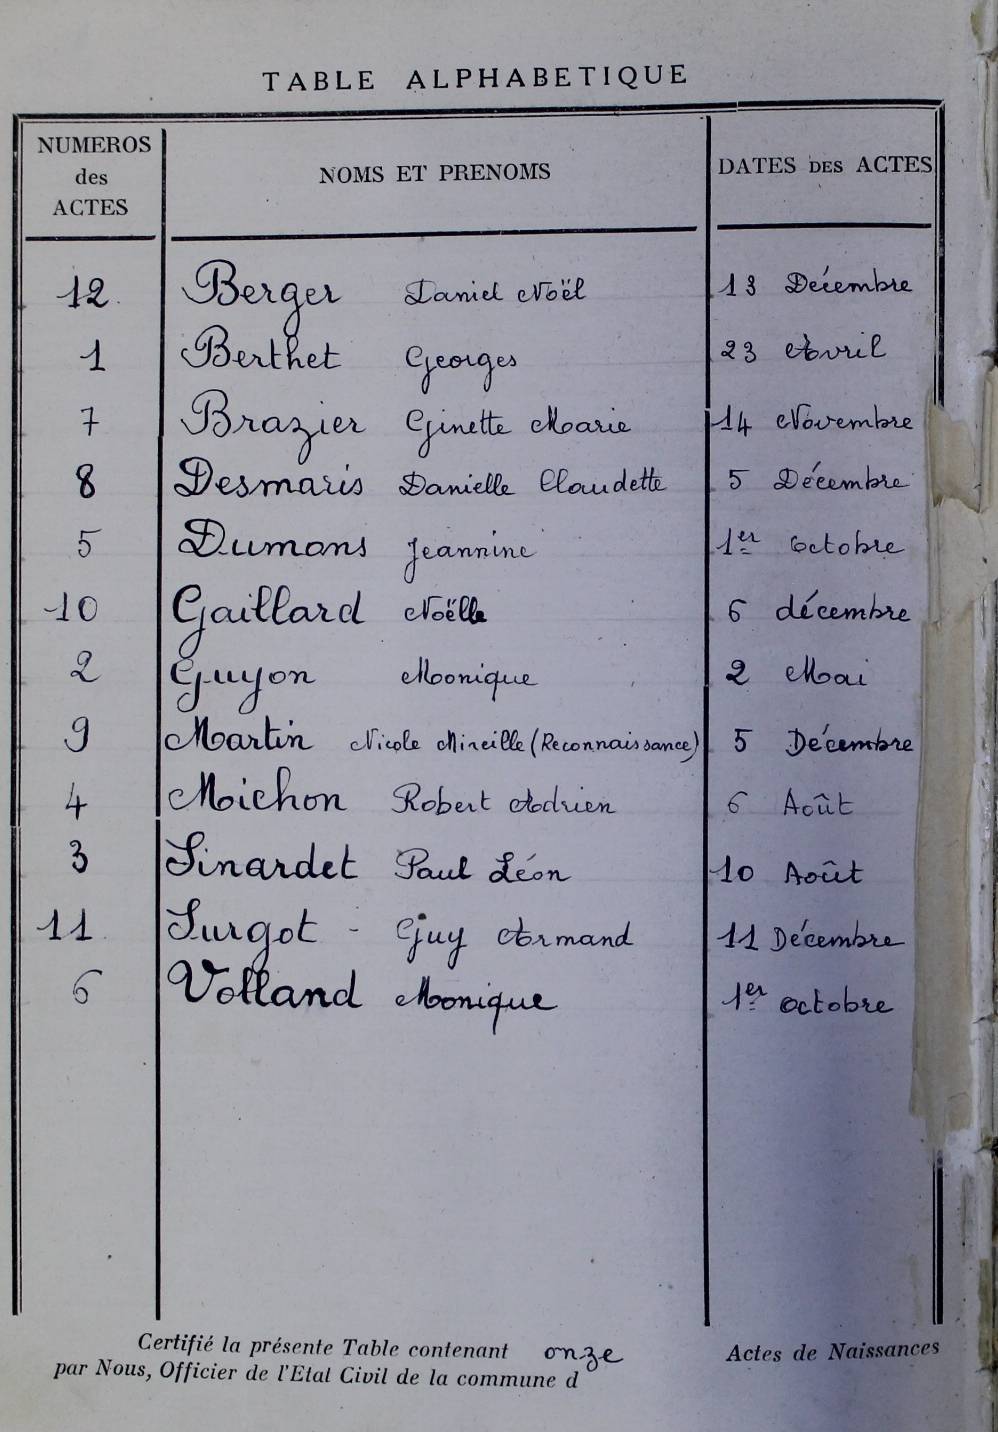 TABLE ALPHABETIQUE
NUMEROS des ACTES NOMS ET PRENOMS DATES DES ACTES
12 Berger Daniel Noël 13 Décembre
1 Berthet Georges 23 Avril
7 Brazier Ginette Marie 14 Novembre
8 Desmaris Danielle Claudette 5 Décembre
5 Dumons Jeannine 1er Octobre
10 Gaillard Noëlle 6 décembre
2 Guyon Monique 2 Mai
9 Martin Nicole Mireille (Reconnaissance) 5 Décembre
4 Michon Robert Adrien 6 Août
3 Sinardet Paul Léon 10 Août
11 Surgot - Guy Armand 11 Décembre
6 Volland Monique 1er octobre
Certifié la présente Table contenant onze Actes de Naissances
par Nous, Officier de l'Etat Civil de la commune d